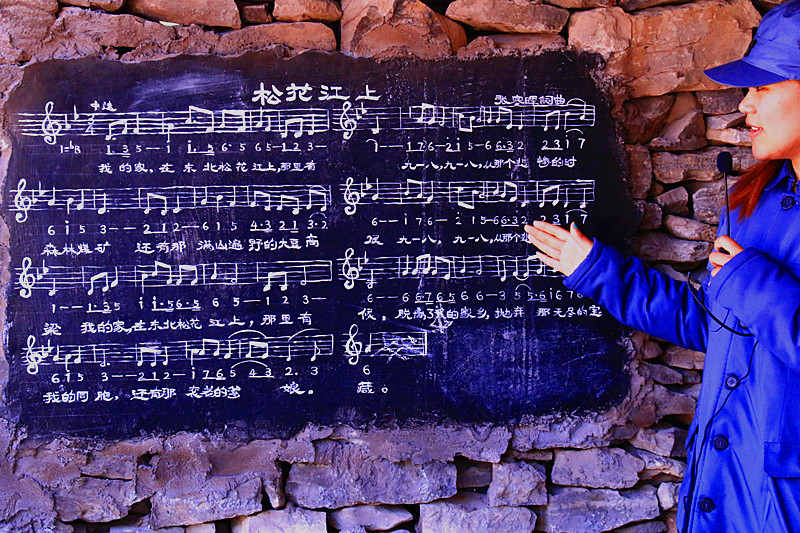 松花江上
张寒晖词曲
中速
1 3 5 — i i 5 6 5 6 5 1 2 3 —
我的家,在东北松花江上,那里有
6 i 5 3 — — 2 1 2 — — 6 1 5 4·3 2 1 3·2
森林煤矿 还有那 满山遍野的大豆高
1 — — 1·3 5 i i·5 6·5 6 5 — 1 2 3 —
梁 我的家,在东北松花 江上,那里有
6 i 5 3 — — 2 1 2 — i 7 6 5 4 3 2. 3
我的同胞,还有那 衰老的爹 娘。
i — — i 7 6 — 2 i 5 — 6 6·3 2 2 3 i 7
九一八,九一八,从那个悲 惨的时
6 — — i 7 6 — 2 i 5 — 6 6·3 2 2 3 i 7
九一八,九一八,从那个
6 — — 6 6 7 6 5 6 6 — 3 5 5·6 i 6 7 6
候,脱离了我的家乡,抛弃 那无尽的宝
6
藏。